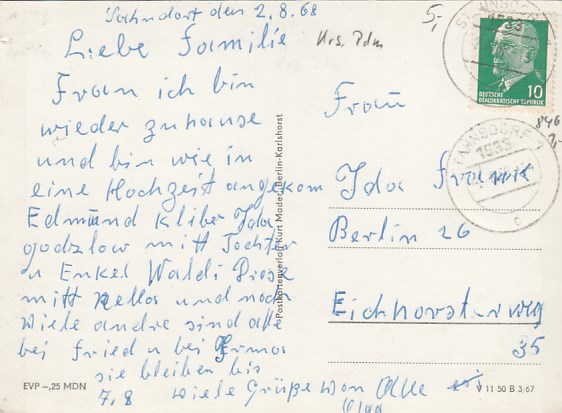 Sahndorf den 2.8.68
Liebe Familie
Frau ich bin
wieder zuhause
und bin wie in
eine Hochzeit angekom
Edmund Kliber Ida
godzlow mitt Tochter
u Enkel Waldi
mitt Nella und noch
wiele andre sind alle
bei Fried u bei Irma
sie bleiben bis
7,8 wiele Grüße von
Krs. Pdm
5,-
Frau
Ida
Berlin 26
Eichhorsterweg
35
10
DEUTSCHE
DEMOKRATISCHE REPUBLIK
1533
846
Postkartenverlag Kurt Mader, Berlin-Karlshorst
EVP –,25 MDN
V 11 50 B 3,67